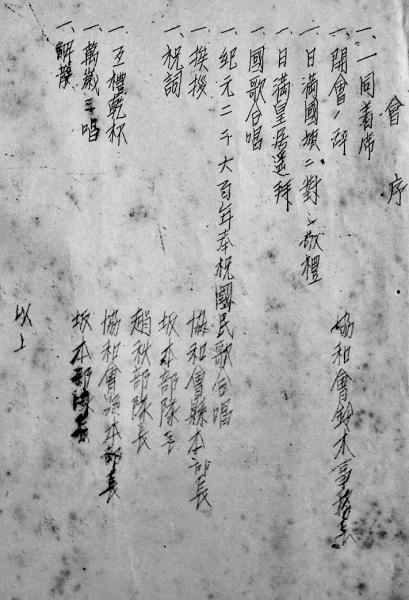 會序
一、一同着席
一、開會ノ辞 協和會鈴木事務長
一、日満國旗ニ對シ敬禮
一、日満皇居遥拜
一、國歌合唱
一、紀元二千六百年奉祝國民歌合唱
一、挨拶 協和會縣本部長
一、祝詞 坂本部隊長
趙秋部隊長
一、互禮乾杯 協和會縣本部長
一、萬歳三唱 坂本部隊長
一、解散
以上